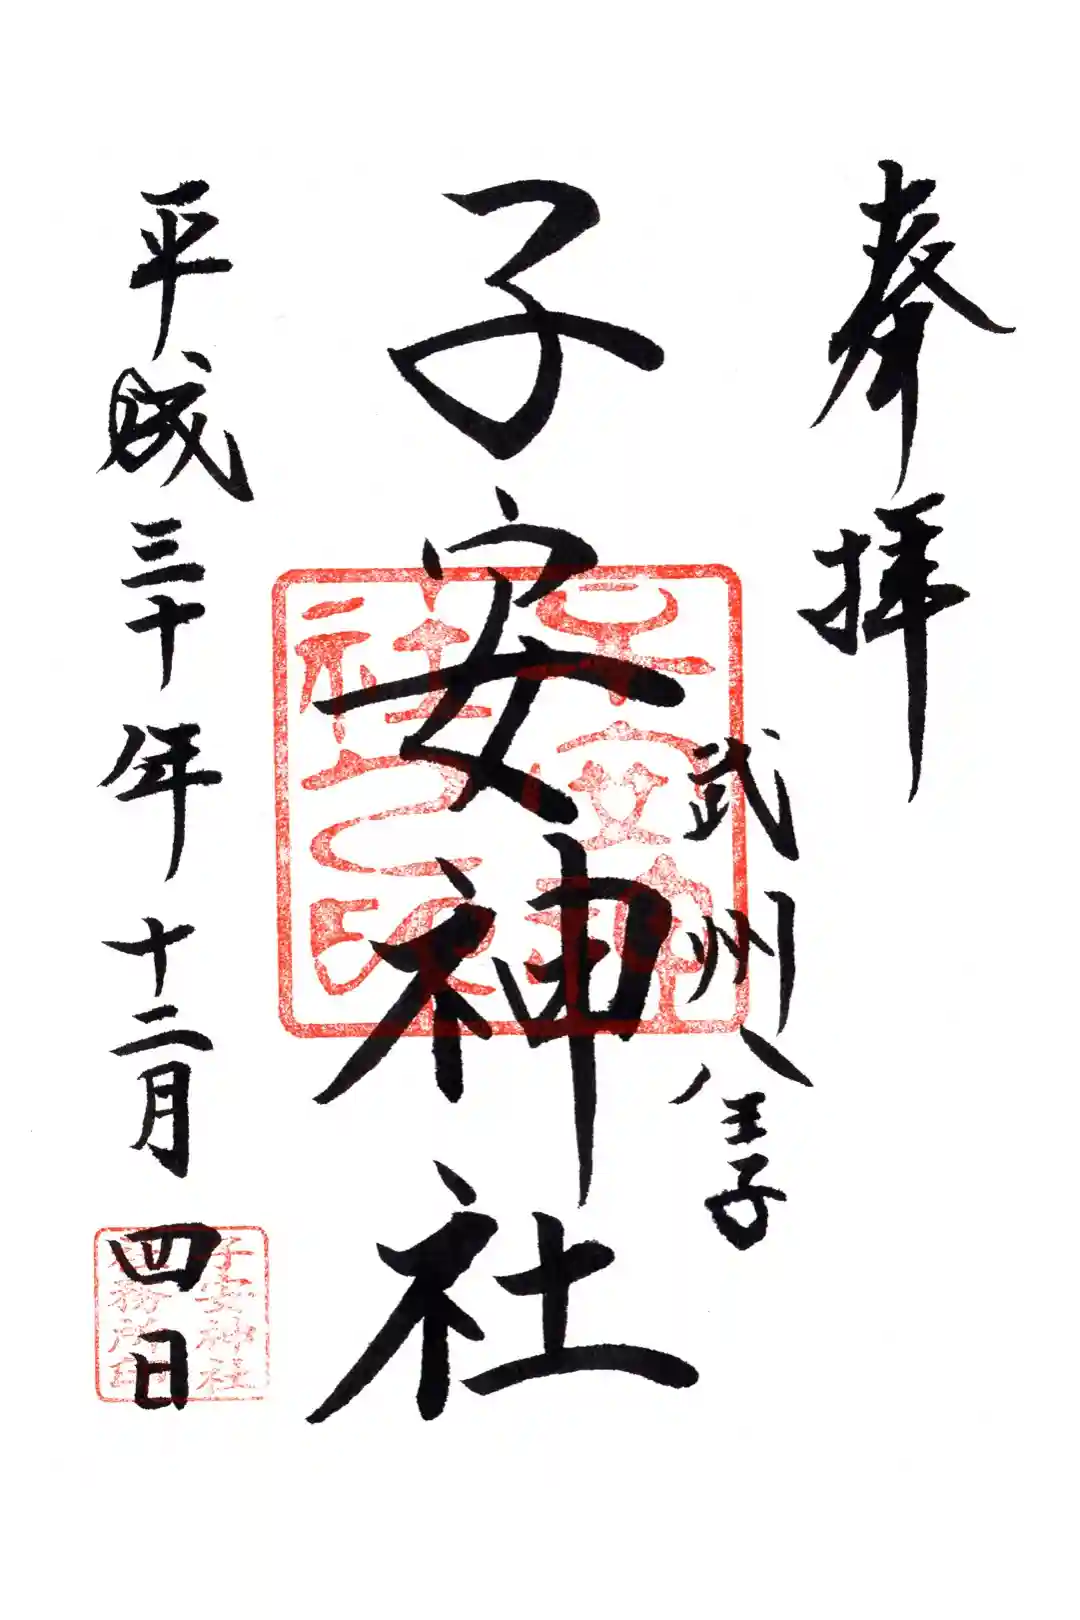 奉拝
武州八王子
子安神社
子安神社之印
平成三十年十二月四日
子安神社
社務所印